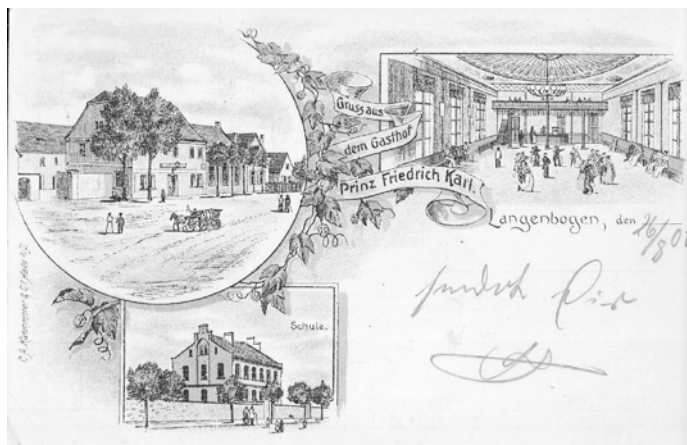 Gruss aus
dem Gasthof
Prinz Friedrich Karl.
Langenbogen, den 26/8
sendet Dir
Schule.